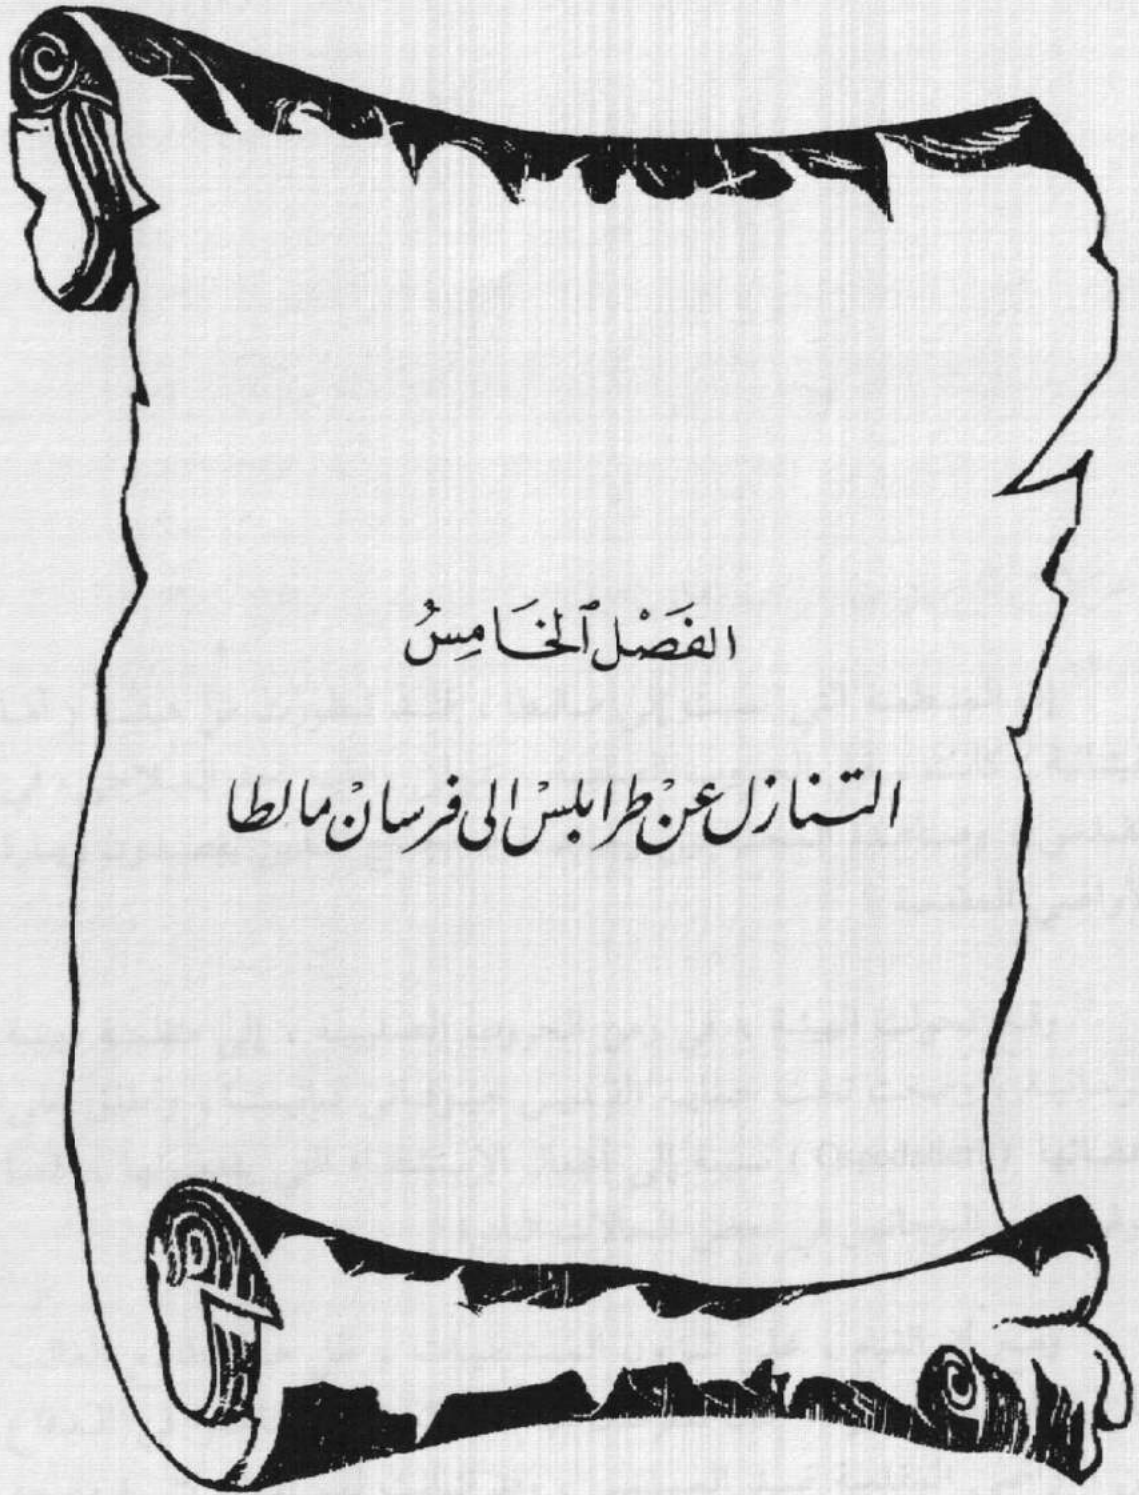 الفَصْل ٱلخَامِسُ
التنازل عنْ طرابلسْ الى فرسانْ مالطا